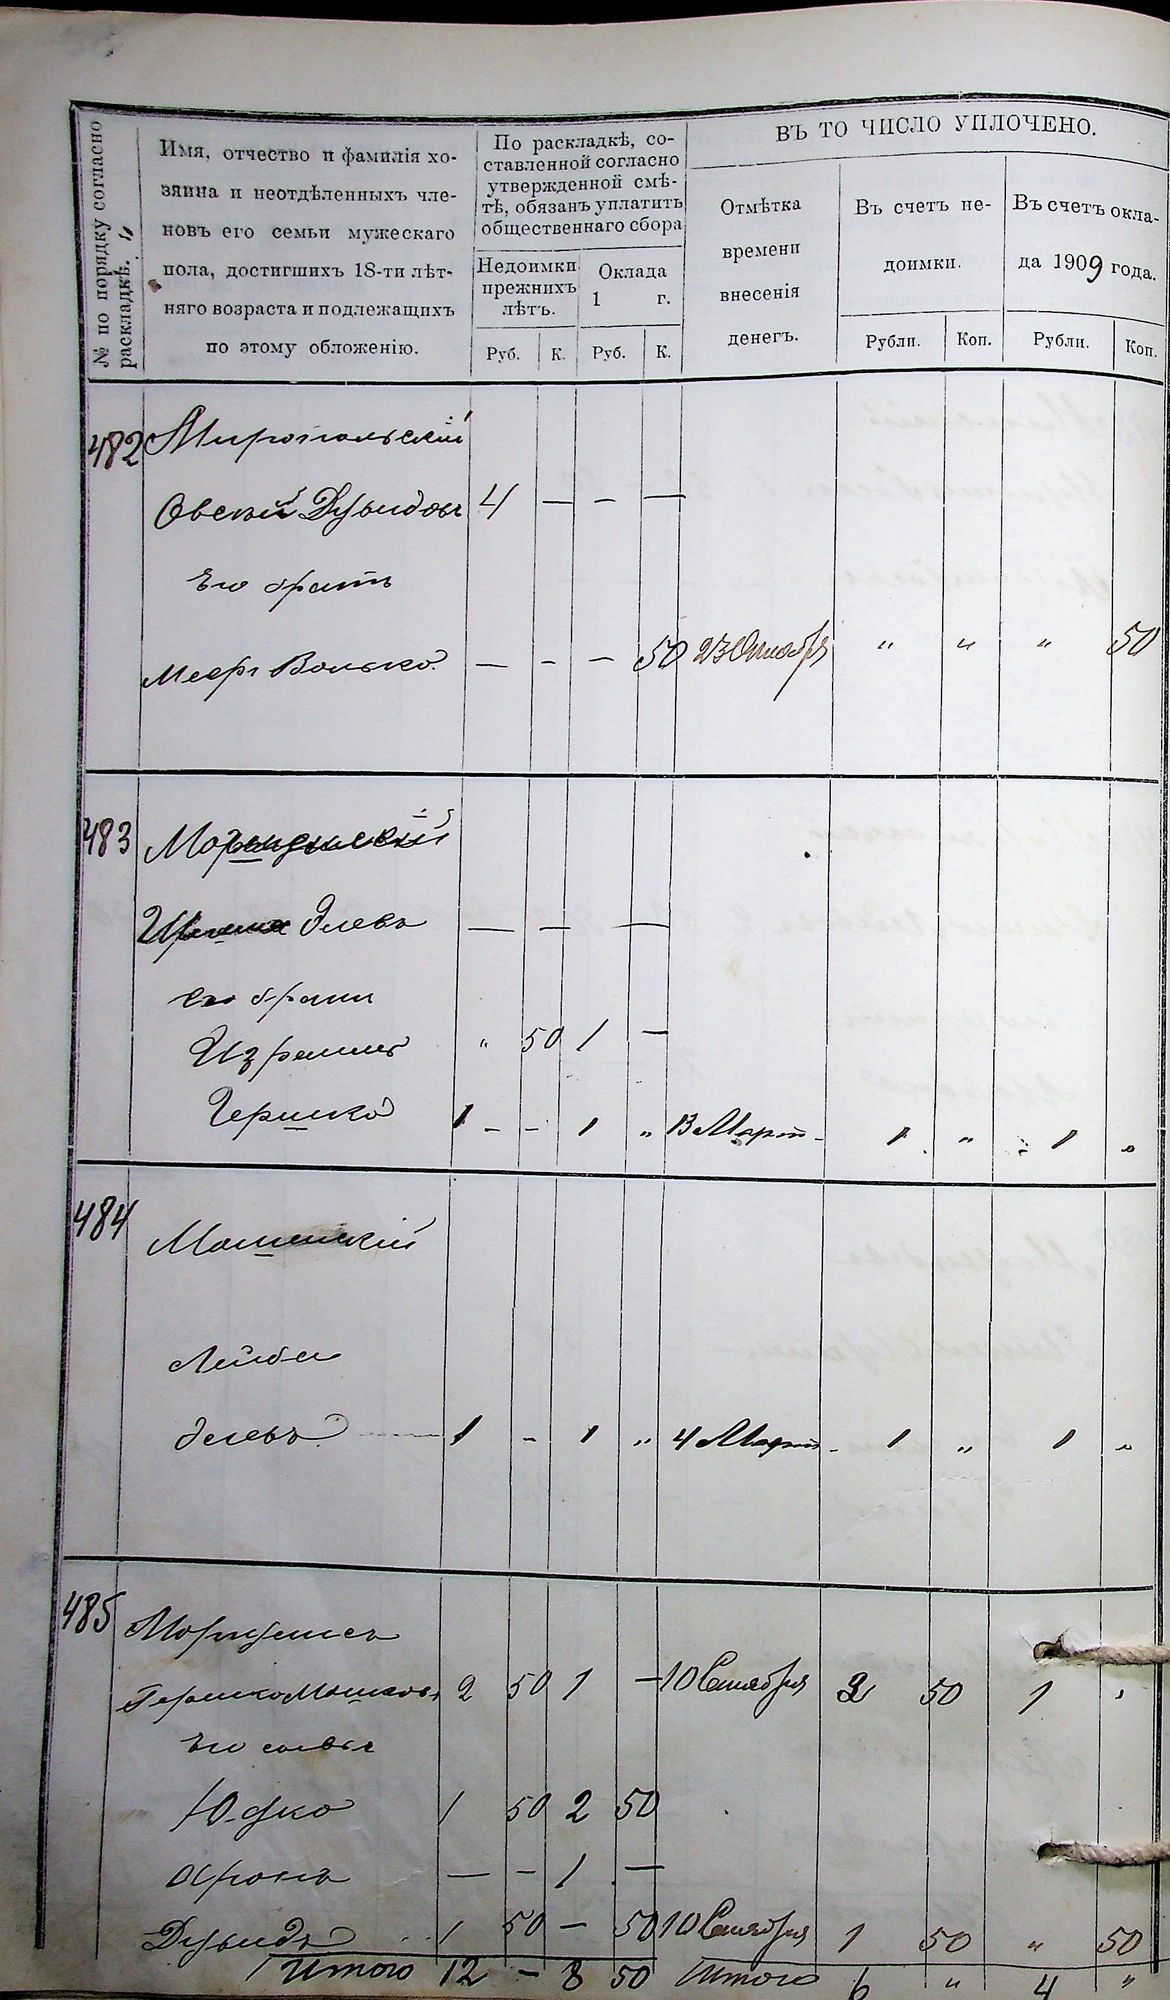 № по порядку согласно раскладкѣ.
Имя, отчество и фамилія хо-
зяина и неотдѣленныхъ чле-
новъ его семьи мужескаго
пола, достигшихъ 18-ти лѣт-
няго возраста и подлежащихъ
по этому обложенію.
По раскладкѣ, со-
ставленной согласно
утвержденной смѣ-
тѣ, обязанъ уплатить
общественнаго сбора
Недоимки
прежнихъ
лѣтъ.
Оклада
1 г.
Руб. К. Руб. К.
ВЪ ТО ЧИСЛО УПЛОЧЕНО.
Отмѣтка
времени
внесенія
денегъ.
Въ счетъ не-
доимки.
Въ счетъ окла-
да 1909 года.
Рубли. Коп. Рубли. Коп.
482 Миропольскій
4 — — —
Его братъ
— - — 50 23 Октября " " " 50
483
Элевъ — — —
его братья
Израиль " 50 1 —
Гершко 1 - - 1 " 13 Март 1 " 1 "
484
Лейба
Элевъ 1 - 1 " 4 Март 1 " 1 "
485
Гершко 2 50 1 — 10 Сентября 2 50 1 "
Его сынъ
Юдко 1 50 2 50
Аронъ — - 1 —
Дувидъ 1 50 — 50 10 Сентября 1 50 " 50
Итого 12 - 8 50 Итого 6 " 4 "